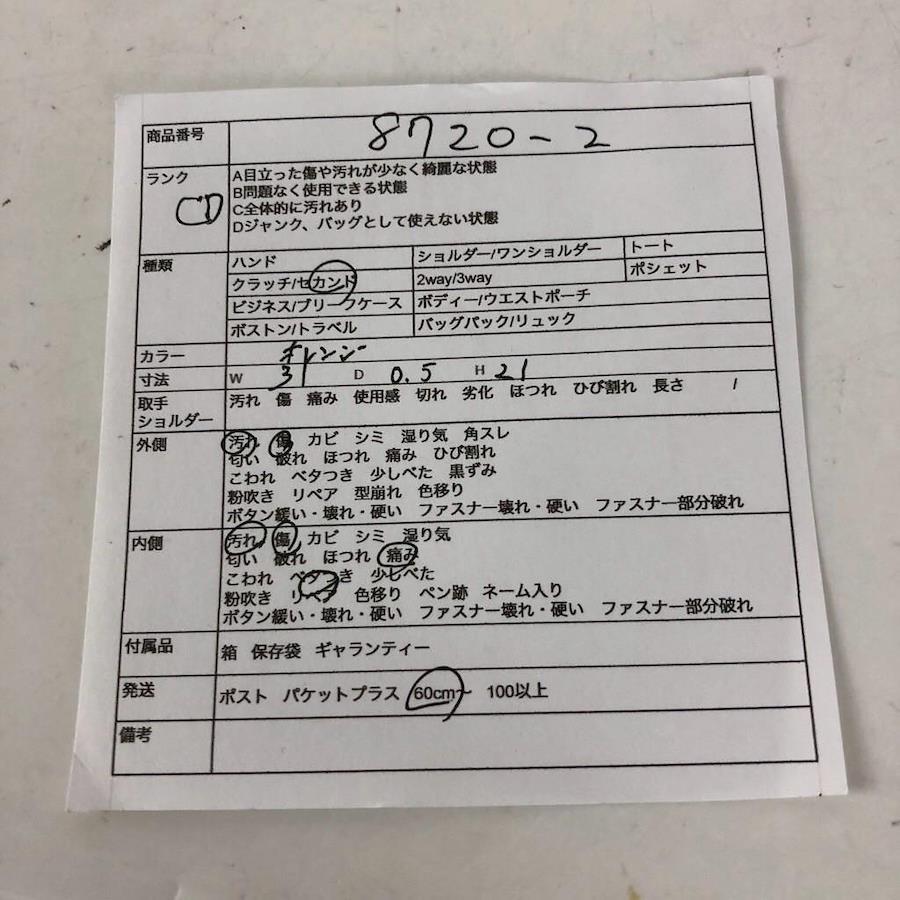 商品番号 8720-2
ランク A目立った傷や汚れが少なく綺麗な状態
B問題なく使用できる状態
CD C全体的に汚れあり
Dジャンク、バッグとして使えない状態
種類 ハンド ショルダー/ワンショルダー トート
クラッチ/セカンド 2way/3way ポシェット
ビジネス/ブリーフケース ボディー/ウエストポーチ
ボストン/トラベル バッグパック/リュック
カラー オレンジ
寸法 W 31 D 0.5 H 21
取手 汚れ 傷 痛み 使用感 切れ 劣化 ほつれ ひび割れ 長さ /
ショルダー
外側 汚れ 傷 カビ シミ 湿り気 角スレ
匂い 破れ ほつれ 痛み ひび割れ
こわれ ベタつき 少しべた 黒ずみ
粉吹き リペア 型崩れ 色移り
ボタン緩い・壊れ・硬い ファスナー壊れ・硬い ファスナー部分破れ
内側 汚れ 傷 カビ シミ 湿り気
匂い 破れ ほつれ 痛み
こわれ ベタつき 少しべた
粉吹き リペア 色移り ペン跡 ネーム入り
ボタン緩い・壊れ・硬い ファスナー壊れ・硬い ファスナー部分破れ
付属品 箱 保存袋 ギャランティー
発送 ポスト パケットプラス 60cm~ 100以上
備考